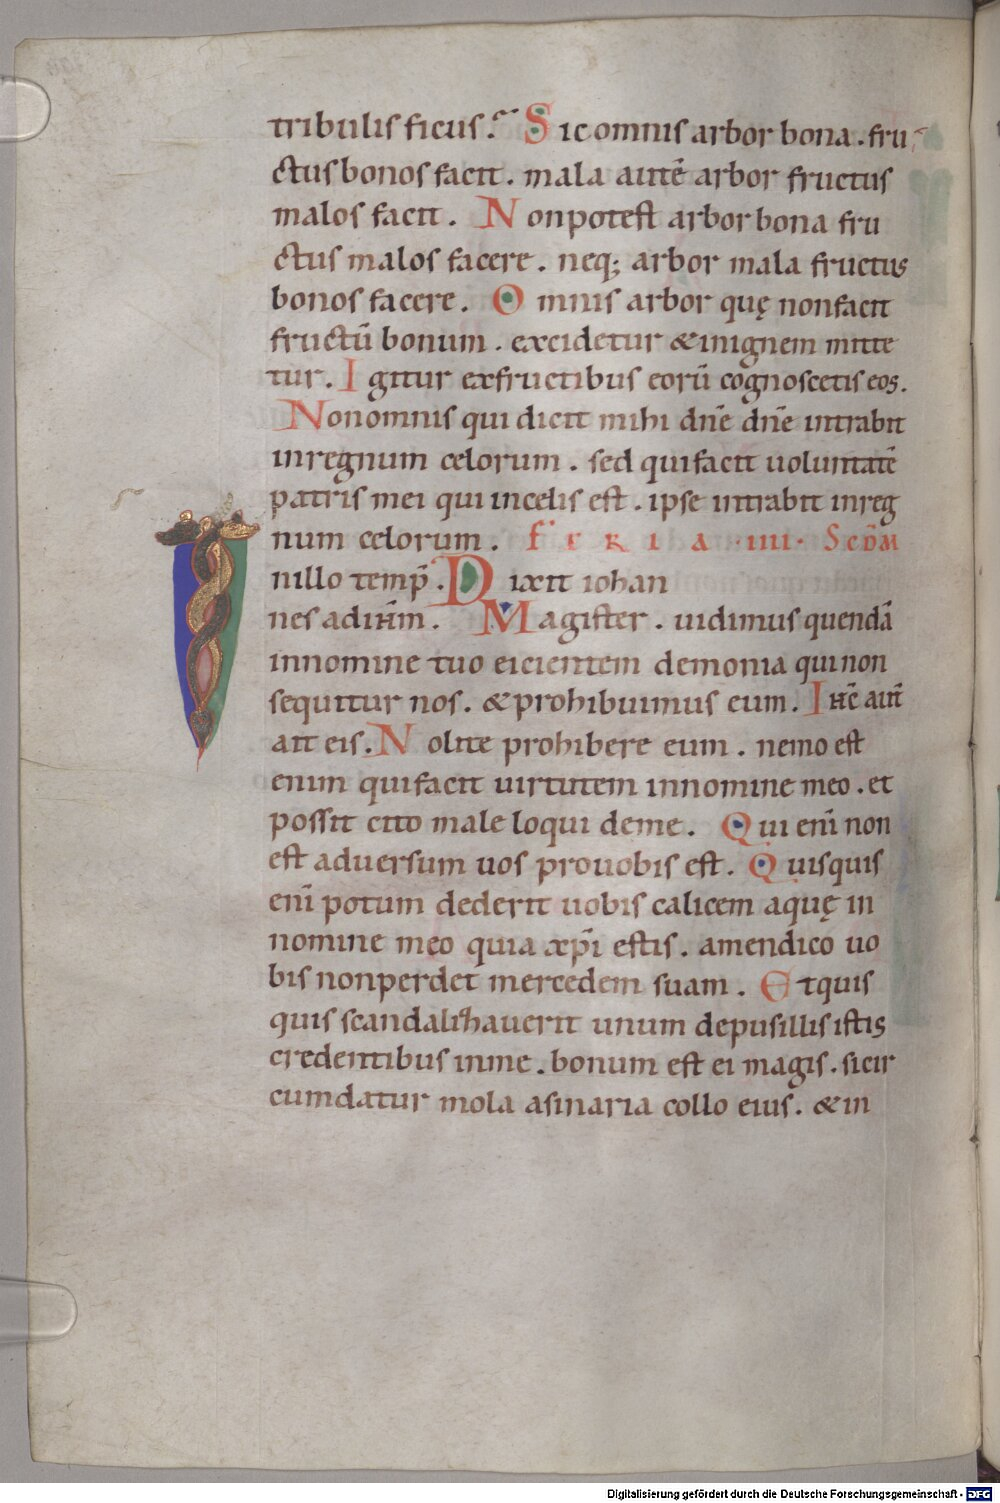 tribulis ficus. Sic omnis arbor bona. fru
ctus bonos facit. mala autē arbor fructus
malos facit. Non potest arbor bona fru
ctus malos facere. neq; arbor mala fructus
bonos facere. Omnis arbor quę non facit
fructū bonum. excidetur & in ignem mitte
tur. Igitur ex fructibus eorū cognoscetis eos.
Non omnis qui dicit mihi dn̄e dn̄e intrabit
in regnum celorum. sed qui facit uoluntatē
patris mei qui in celis est. ipse intrabit in reg
num celorum. FERIA ·IIII· SCD̄M
In illo temp̄. Dixit iohan
nes ad ih̄m. Magister. uidimus quendā
in nomine tuo eicientem demonia qui non
sequitur nos. & prohibuimus eum. Ih̄c aut̄
ait eis. Nolite prohibere eum. nemo est
enim qui facit uirtutem in nomine meo. et
possit cito male loqui de me. Qui enī non
est aduersum uos pro uobis est. Quisquis
enī potum dederit uobis calicem aquę in
nomine meo quia xp̄i estis. amen dico uo
bis non perdet mercedem suam. Et quis
quis scandalizauerit unum de pusillis istis
credentibus in me. bonum est ei magis. si cir
cumdatur mola asinaria collo eius. & in
Digitalisierung gefördert durch die Deutsche Forschungsgemeinschaft - DFG